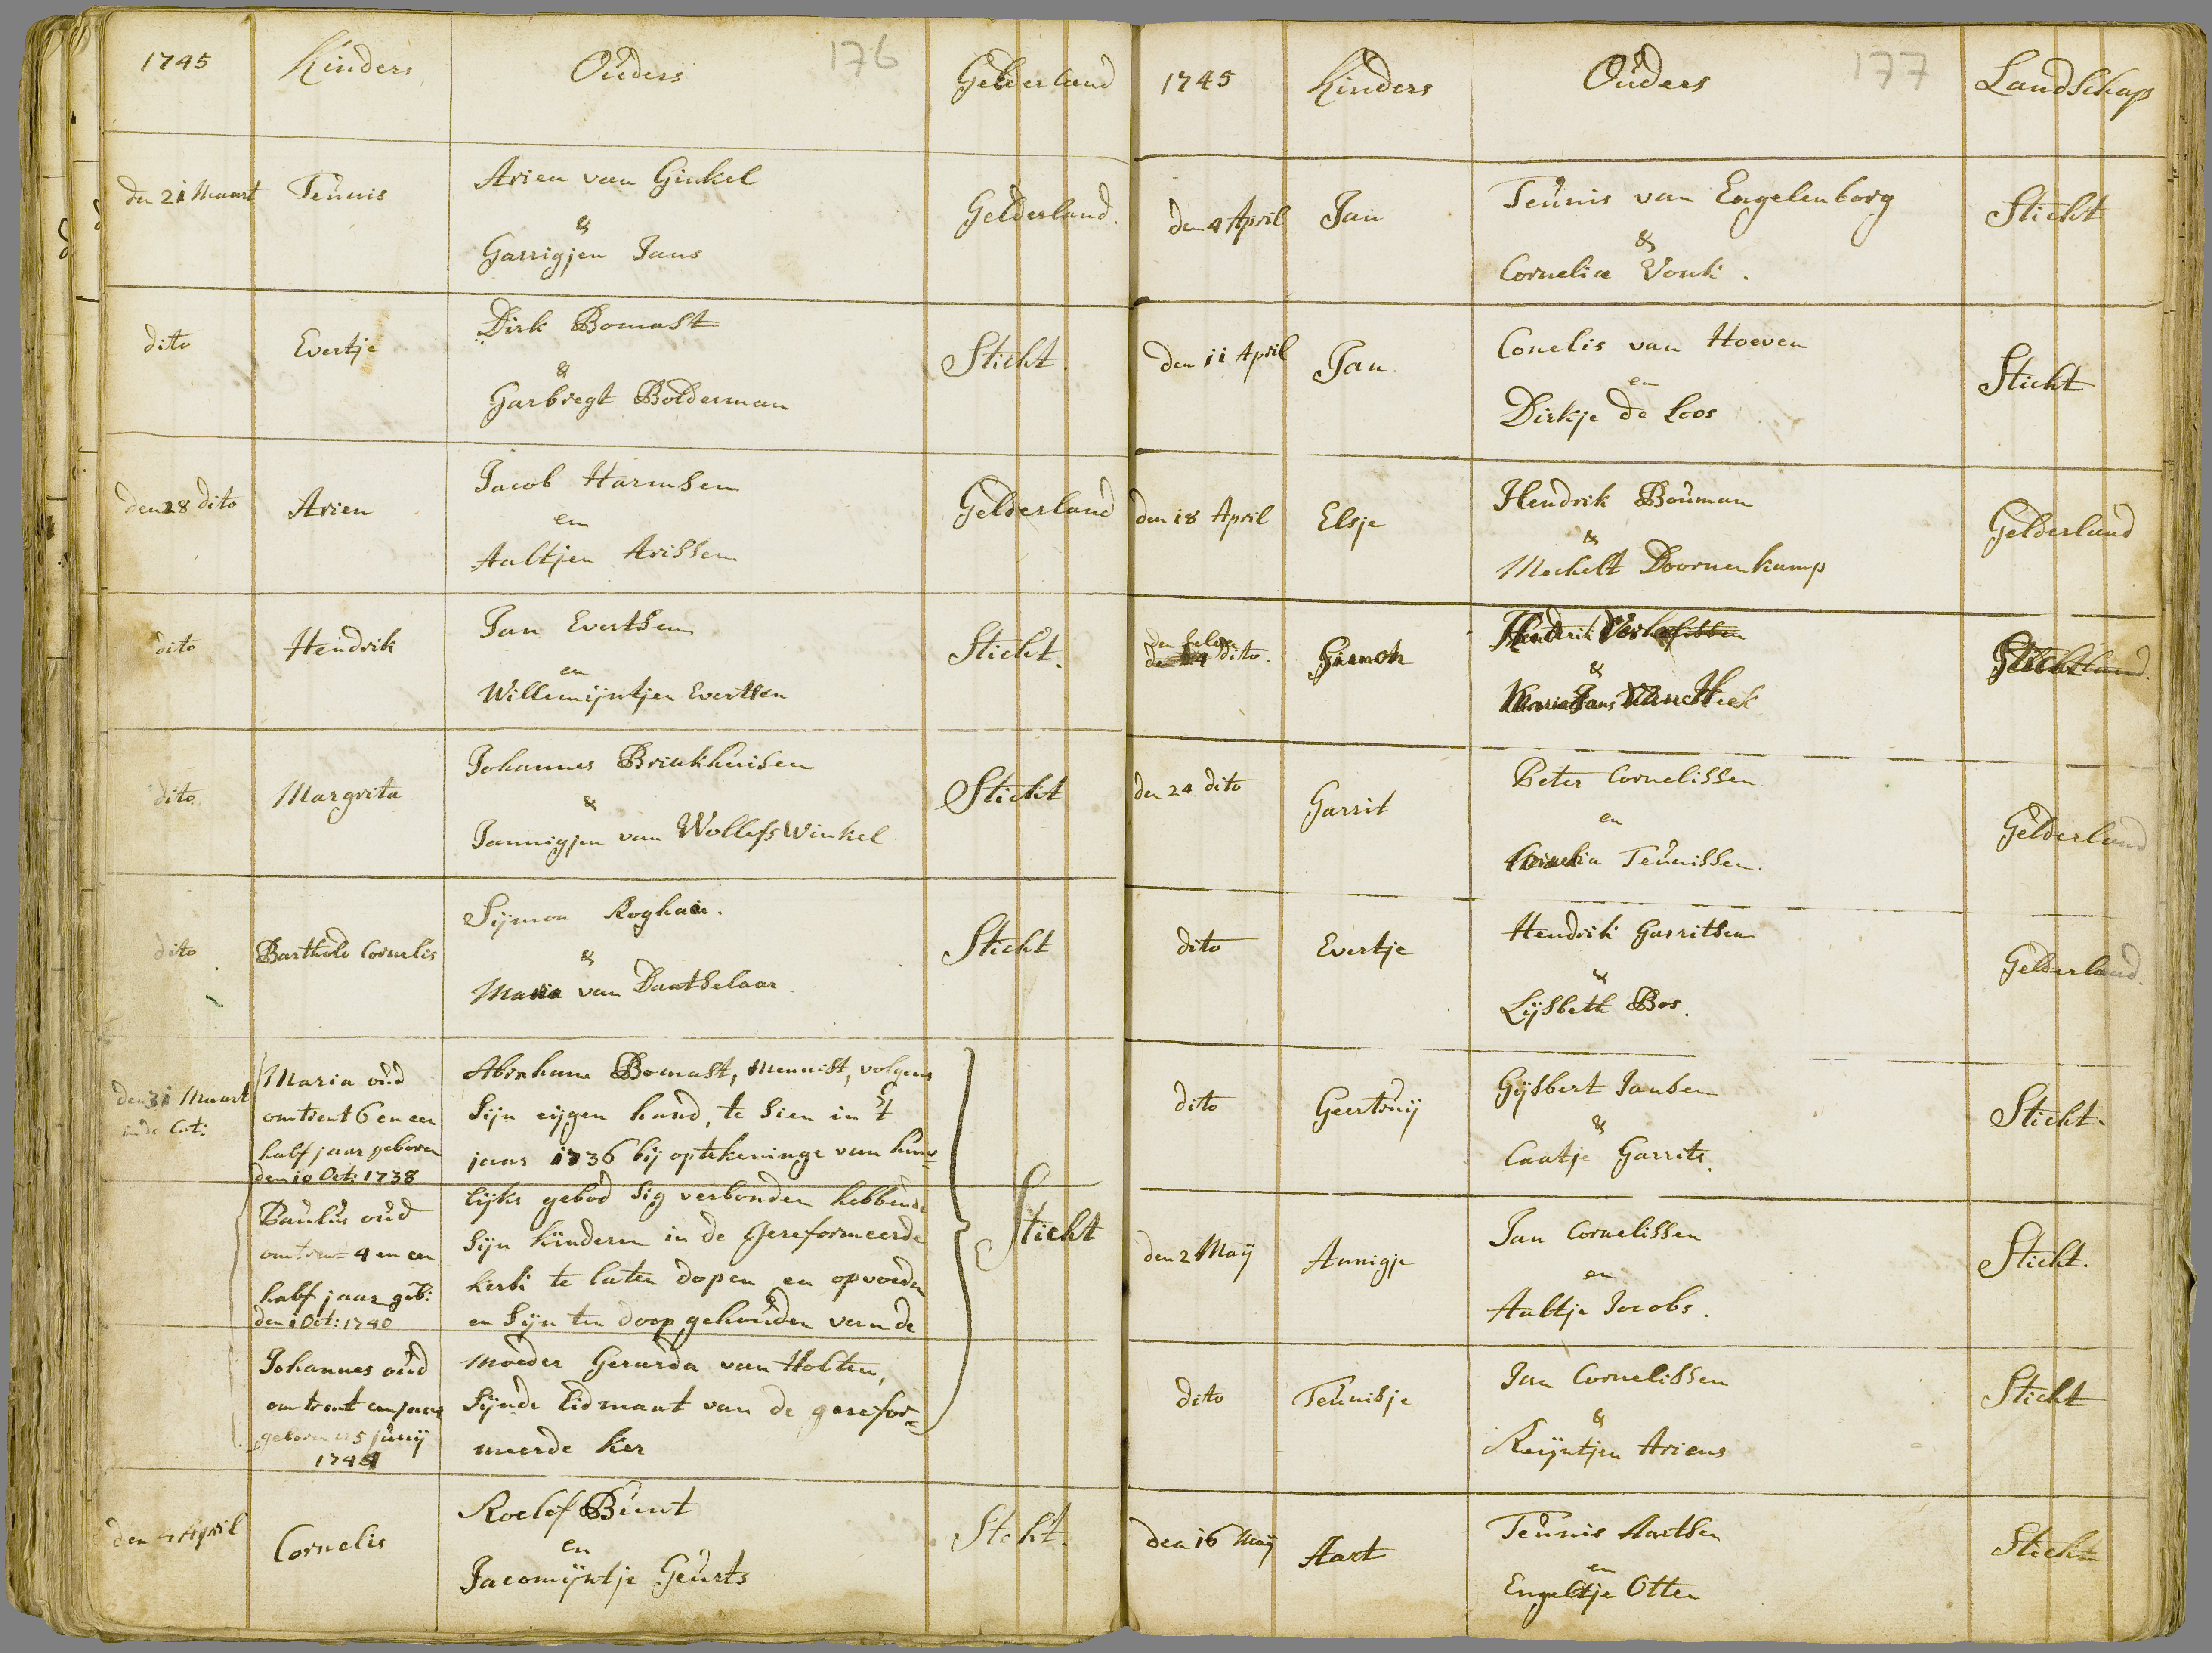 176
1745 Kinders Ouders Gelderland
den 21 Maart Teunis Arien van Ginkel Gelderland.
&
Garrigjen Jans
dito Evertje Dirk Bomast Sticht.
&
Garbregt Bolderman
den 28 dito Arien Jacob Harmsen Gelderland
en
Aaltjen Arissen
dito Hendrik Jan Evertsen Sticht.
en
Willemijntjen Evertsen
dito Margrita Johannes Brinkhuisen Sticht
&
Jannigjen van Wollefswinkel
dito Barthold Cornelis Sijmon Roghair. Sticht
&
Maria van Daatselaar
den 31 Maart
in de Cat:
Maria oud
omtrent 6 en een
half jaar geboren
den 10 Oct: 1738
Paulus oud
omtren= 4 en een
half jaar geb:
den 1 Oct: 1740
Johannes oud
omtrent een jaar
geboren 15 junij
1744
Abraham Bomast, Mennist, volgens
sijn eijgen hand, te sien in 't
jaar 1736 bij optekeninge van huw=
lijks gebod sig verbonden hebbende
sijn kinderen in de Gereformeerde
kerk te laten dopen en opvoeden
en sijn ten doop gehouden van de
moeder Gerarda van Holten,
sijnde Lidmaat van de gerefor=
meerde ker
Sticht
den 4 April Cornelis Roelof Bunt Stcht.
en
Jacomijntje Geurts
177
1745 Kinders Ouders Landschap
den 4 April Jan Teunis van Engelenborg Sticht
&
Cornelia Vonk.
den 11 April Jan Conelis van Hoeven Sticht
en
Dirkje de Loos
den 18 April Elsje Hendrik Bouman Gelderland
&
Mechelt Doornenkamp
den selven
dito.
Hendrik
&
den 24 dito Garrit Peter Cornelissen Gelderland
en
Cornelia Teunissen.
dito Evertje Hendrik Garritsen Gelderland.
&
Lijsbeth Bos.
dito Geertruij Gijsbert Jansen Sticht.
&
Caatje Garrits.
den 2 Maij Annigje Jan Cornelissen Sticht.
en
Aaltje Jacobs.
dito Teunisje Jan Cornelissen Sticht
&
Reijntjen Ariens
den 16 Maij Aart Teunis Aartsen Sticht
en
Engeltje Otten